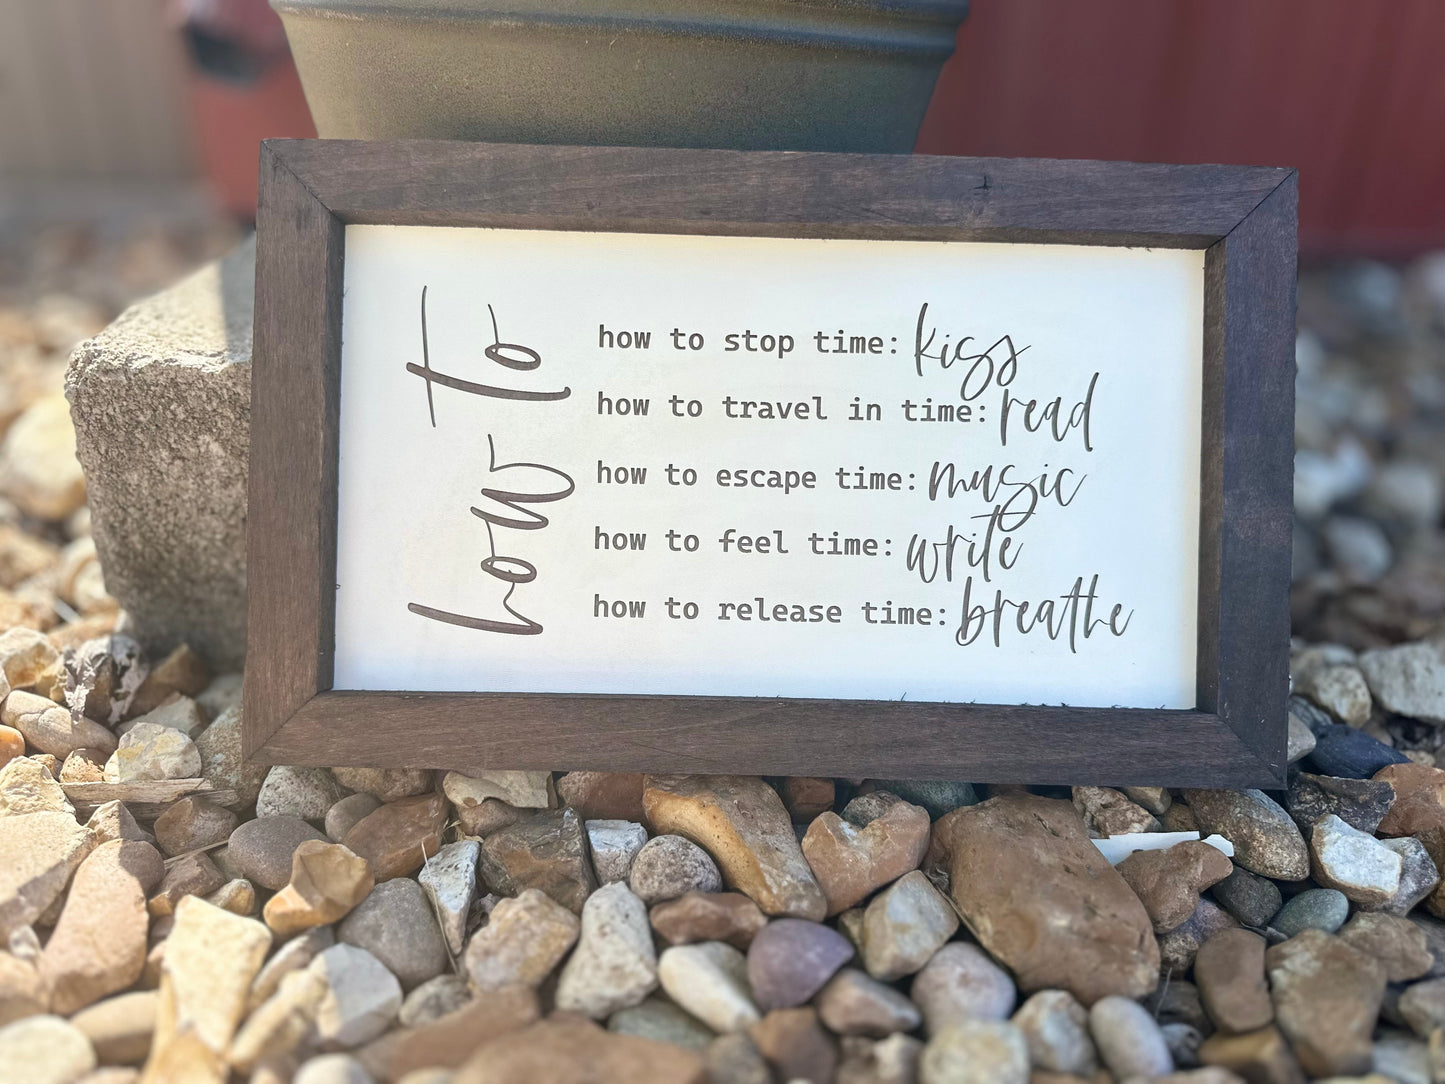 how to
how to stop time: kiss
how to travel in time: read
how to escape time: music
how to feel time: write
how to release time: breathe